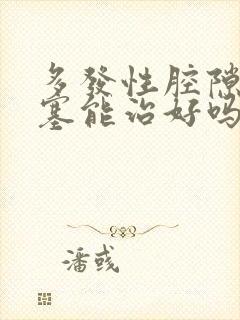 多發性腔隙
塞能治好嗎
潘彧